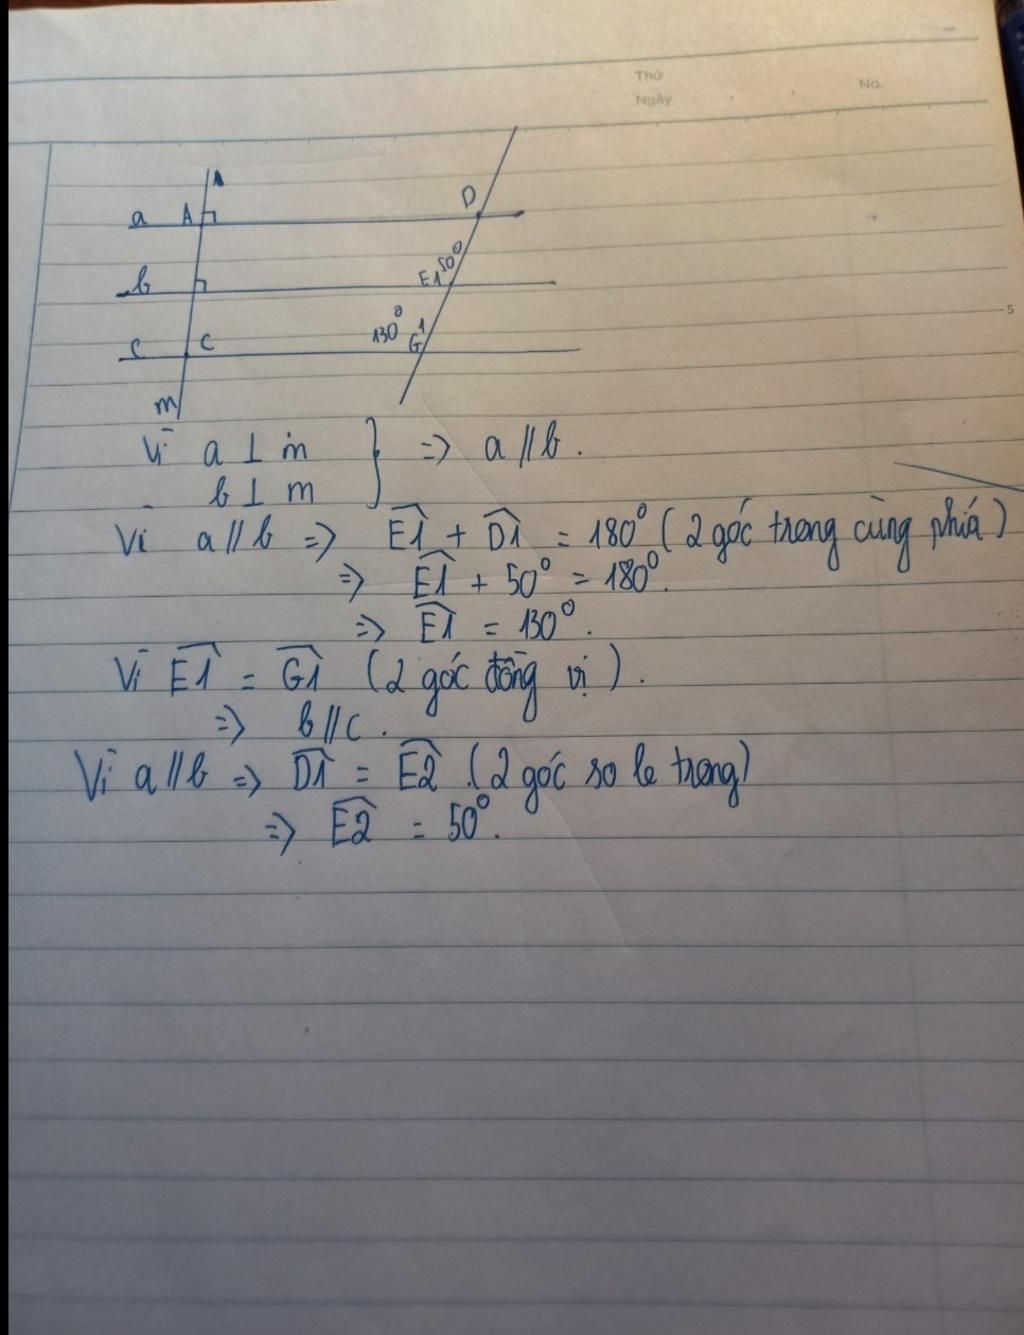 Thứ
Ngày
No.
5
a A D
b E1 50°
c C 130° G 1
m
Vì a ⊥ m } => a // b.
b ⊥ m
Vì a // b => Ê1 + D̂1 = 180° (2 góc trong cùng phía)
=> Ê1 + 50° = 180°.
=> Ê1 = 130°.
Vì Ê1 = Ĝ1 (2 góc đồng vị).
=> b // c.
Vì a // b => D̂1 = Ê2 (2 góc so le trong)
=> Ê2 = 50°.